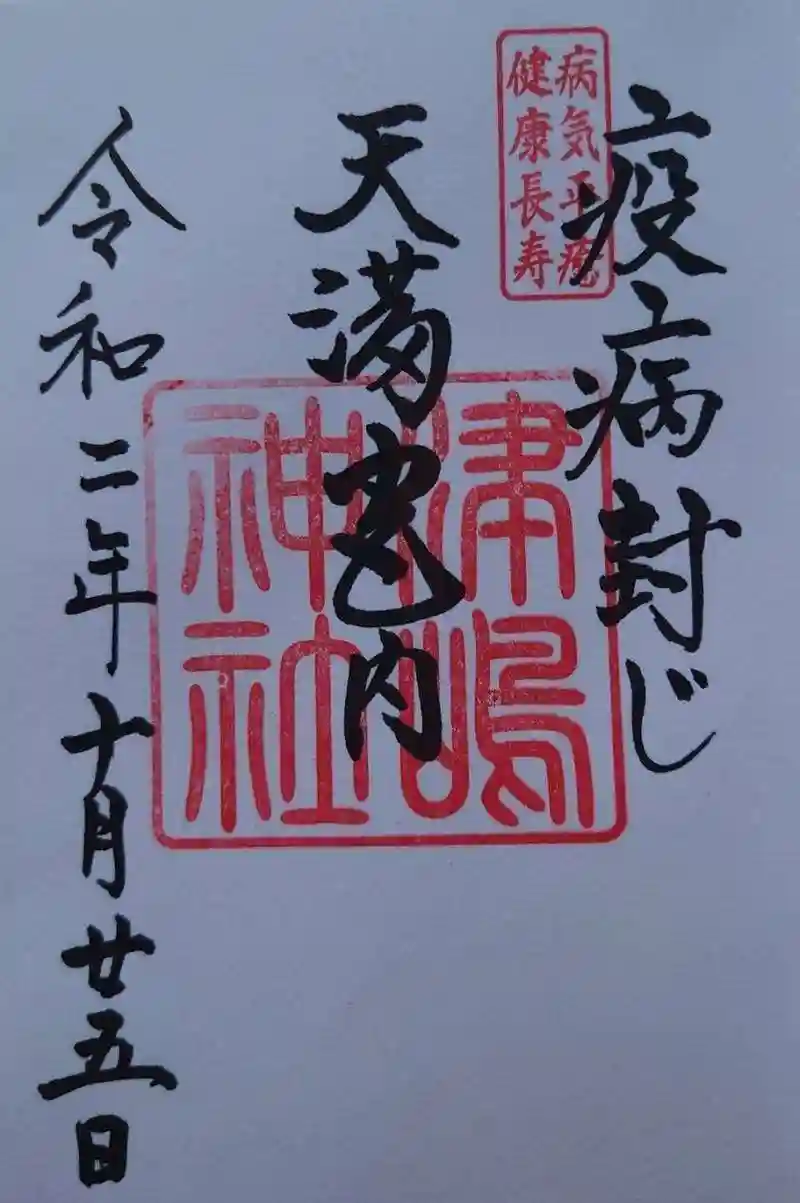 疫病封じ
病気平癒
健康長寿
天満宮内
津嶋
神社
令和二年十月廿五日